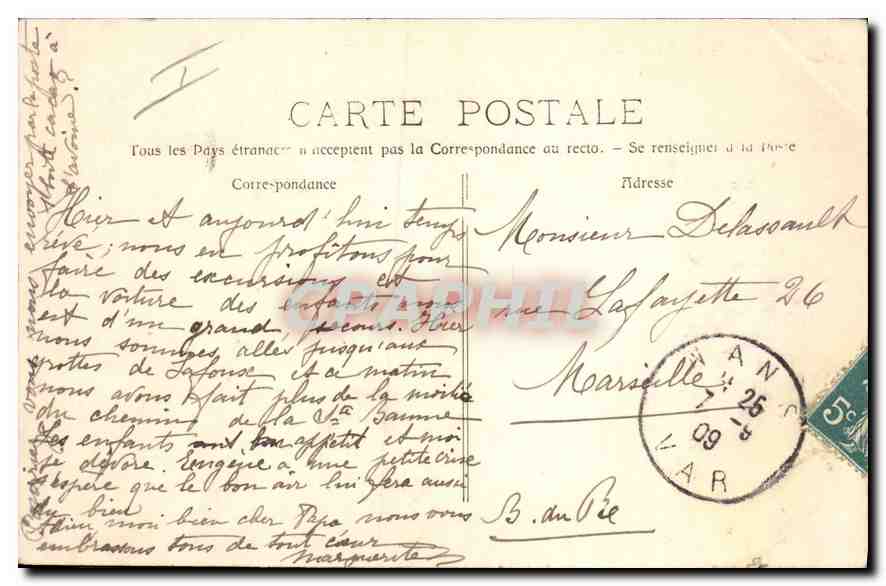 CARTE POSTALE
Tous les Pays étrangers n'acceptent pas la Correspondance au recto. – Se renseigner à la Poste
Correspondance
Adresse
Hier et aujourd'hui temps
rêvé ; nous en profitons pour
faire des excursions et
la voiture des enfants nous
est d'un grand secours. Hier
nous sommes allés jusqu'aux
grottes de Lafoux et ce matin
nous avons fait plus de la moitié
du chemin de la Ste Baume
Les enfants ont bon appétit et moi
je dévore. Eugénie a une petite crise
j'espère que le bon air lui fera aussi
du bien
Adieu mon bien cher Papa nous vous
embrassons tous de tout cœur
Marguerite
vous nous envoyer par la poste
1 boîte cacao à
l'avoine ?
Monsieur Delassault
rue Lafayette 26
Marseille
B. du R
NANS
7 25
-9
09
VAR
5c
CPAPHIL